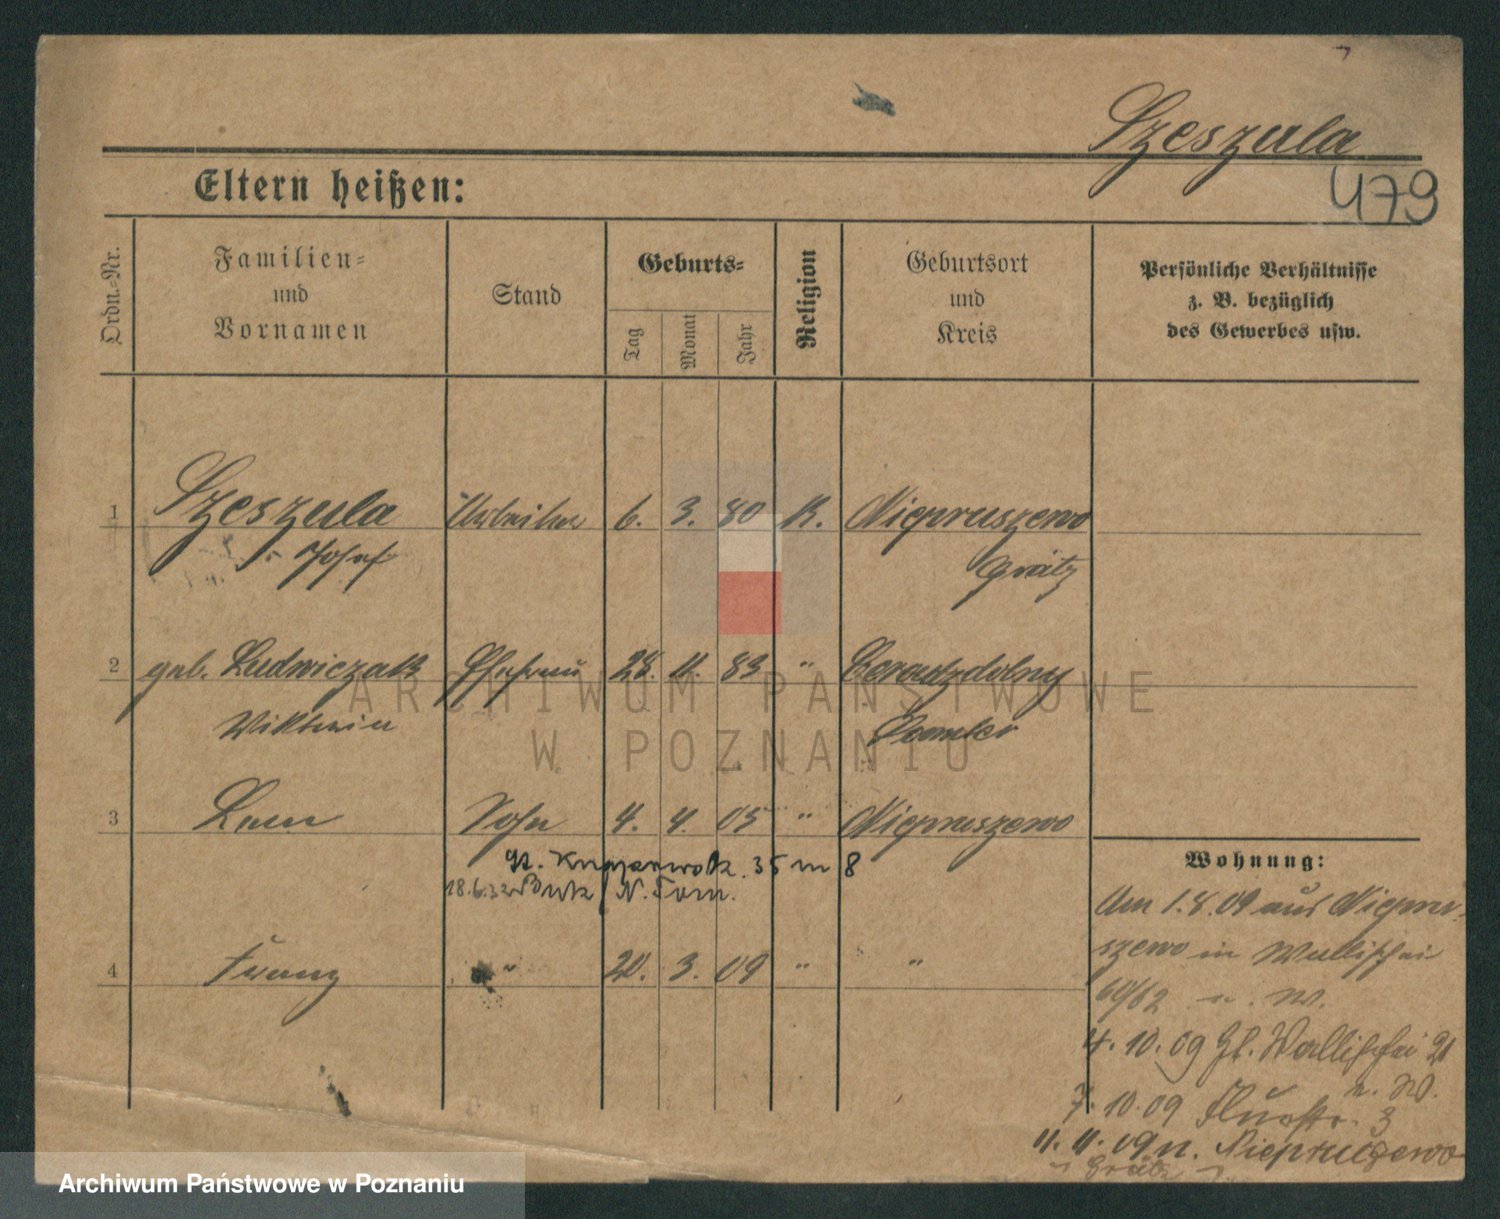 Szeszula
479
Eltern heißen:
Ordn.-Nr.
Familien- und Vornamen
Stand
Geburts-
Tag
Monat
Jahr
Religion
Geburtsort und Kreis
Persönliche Verhältnisse
z. B. bezüglich
des Gewerbes usw.
1 Szeszula Arbeiter 6. 3. 80 K. Niepruszewo
Josef Grätz
2 geb. Ludwiczak Ehefrau 28. 11. 83 "
Viktoria Samter
3 Leon Sohn 4. 4. 05 " Niepruszewo
35 m 8
18.6.32 Buk / N. Tom.
4 Franz " 20. 3. 09 " "
Wohnung:
Am 1.8.09 aus Niepru-
szewo in Wallischei
60/62 n. W.
4.10.09 Gr. Wallischei 21
n. W.
7.10.09 Flurstr. 3
11.11.09 n. Niepruszewo
Grätz
ARCHIWUM PAŃSTWOWE
W POZNANIU
Archiwum Państwowe w Poznaniu